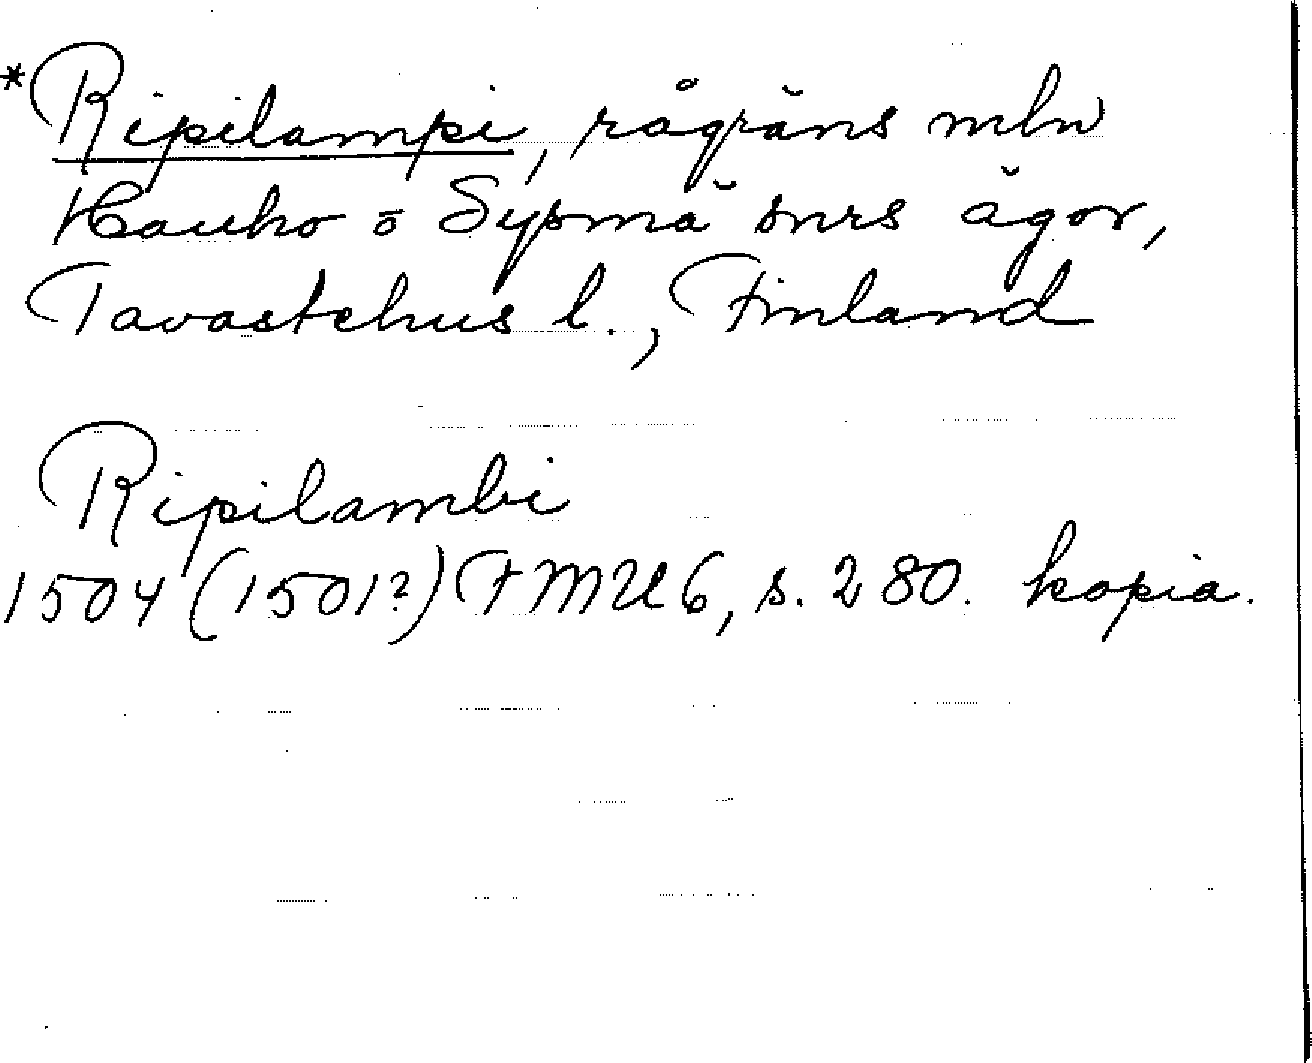 *Ripilampi, rågräns mln
Hauho o Sysmä snrs ägor,
Tavastehus l., Finland
Ripilambi
1504 (1501?) FMU 6, s. 280. kopia.